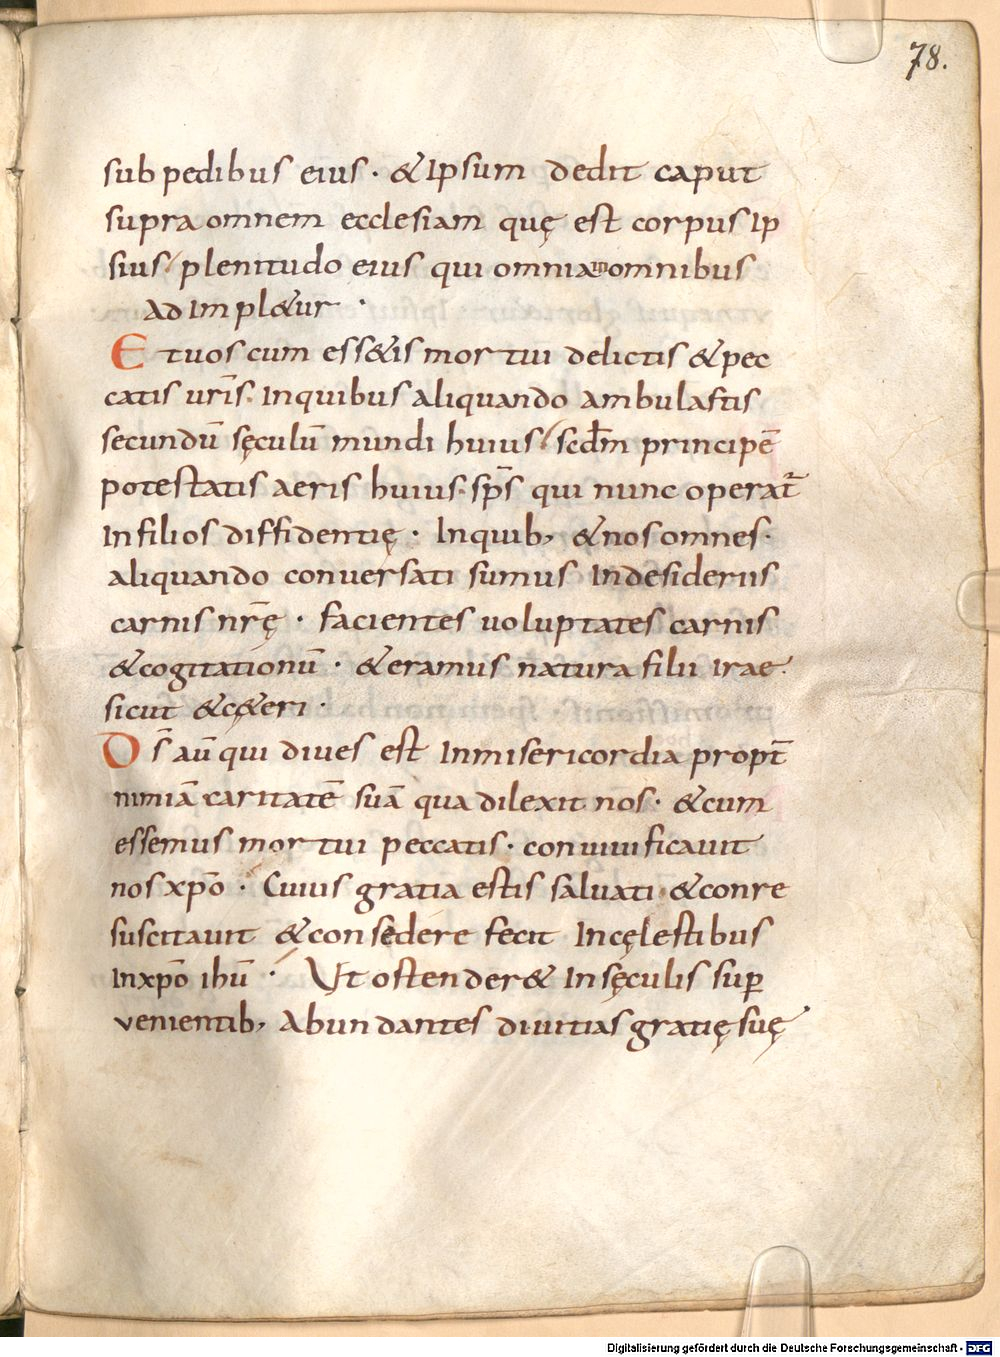 78.
sub pedibus eius · & Ipsum dedit caput
supra omnem ecclesiam quę est corpus Ip
sius / plenitudo eius qui omnia in omnibus
ad Impl&ur ·
Et uos cum ess&is mortui delictis & pec
catis ur̄is. Inquibus aliquando ambulastis
secundū sęculū mundi huius / scd̄m principē
potestatis aeris huius · sp̄s qui nunc operat̄
In filios diffidentię · Inquib, & nos omnes ·
aliquando conuersati sumus In desideriis
carnis nr̄ę · facientes uoluptates carnis
& cogitationū · & eramus natura filii Irae ·
sicut & c&eri ·
Ds̄ aū qui diues est In misericordia propt̄
nimiā caritatē suā qua dilexit nos · & cum
essemus mortui peccatis · conuiuificauit
nos xp̄o · Cuius gratia estis saluati · & conre
suscitauit & consedere fecit In cęlestibus
In xp̄o ihū · Ut ostender& In sęculis sup̄
uenientib, Abundantes diuitias gratię suę
Digitalisierung gefördert durch die Deutsche Forschungsgemeinschaft - DFG